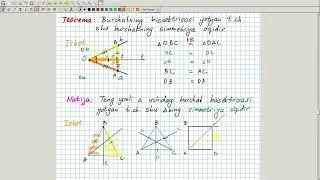 Teorema: Burchakning bissektrisasi yotgan t.ch.
shu burchakning simmetriya o'qidir
Isbot
b
B
O
C
A
a
△OBC = △OAC
OC = OC
BC = AC
OB = OA
Natija: Teng yonli △ uchidagi burchak bissektrisasi
yotgan t.ch shu △ning simmetriya o'qidir.
Isbot
B
B
B
C
A
C
A
C
A
D